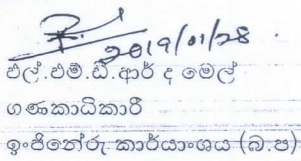 2019/01/28.
එල්.එම්.ඩී.ආර් ද මෙල්
ගණකාධිකාරී
ඉංජිනේරු කාර්යාංශය (බ.ප)